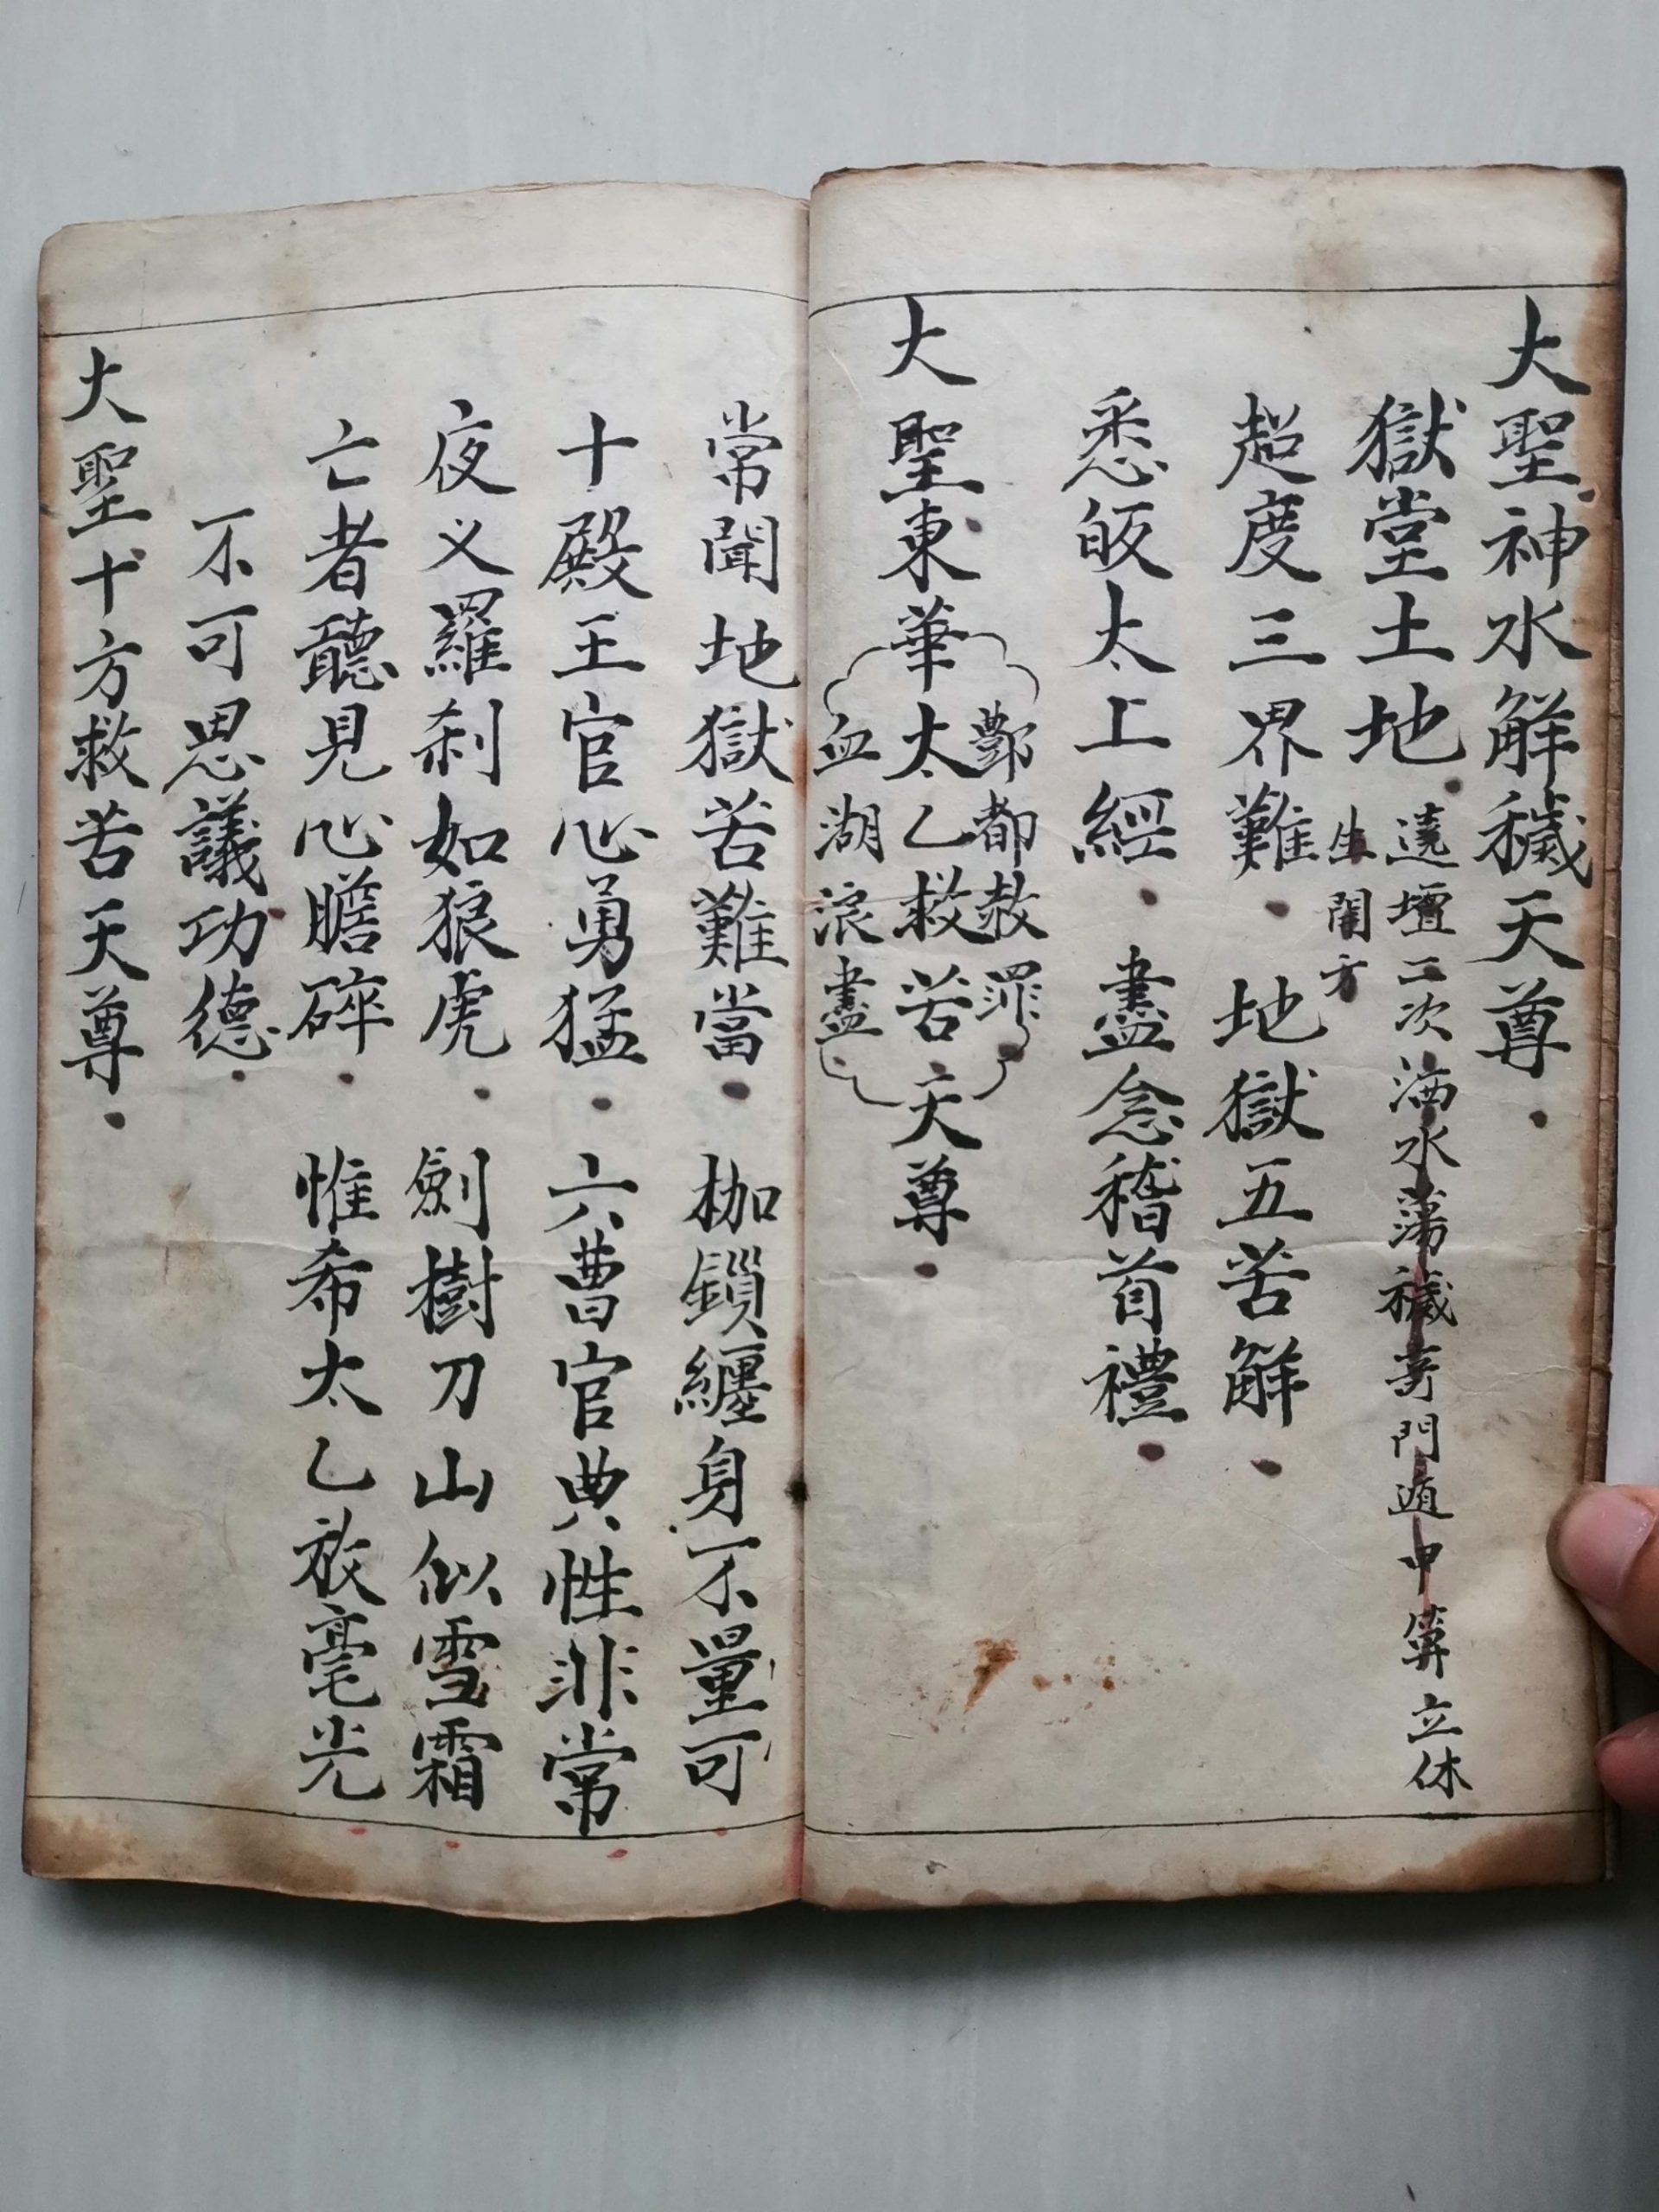 大聖神水解穢天尊
獄堂土地
遶壇二次洒水蕩穢奇門遁甲筭立休
生開方
超度三界難 地獄五苦解
悉皈太上經 盡念稽首禮
大聖東華太乙救苦天尊
酆都赦罪
血湖浪盡
常聞地獄苦難當 枷鎖纏身不量可
十殿王官心勇猛 六曹官典性非常
夜义羅刹如狼虎 劍樹刀山似雪霜
亡者聽見心膽碎 惟希太乙放毫光
不可思議功德
大聖十方救苦天尊